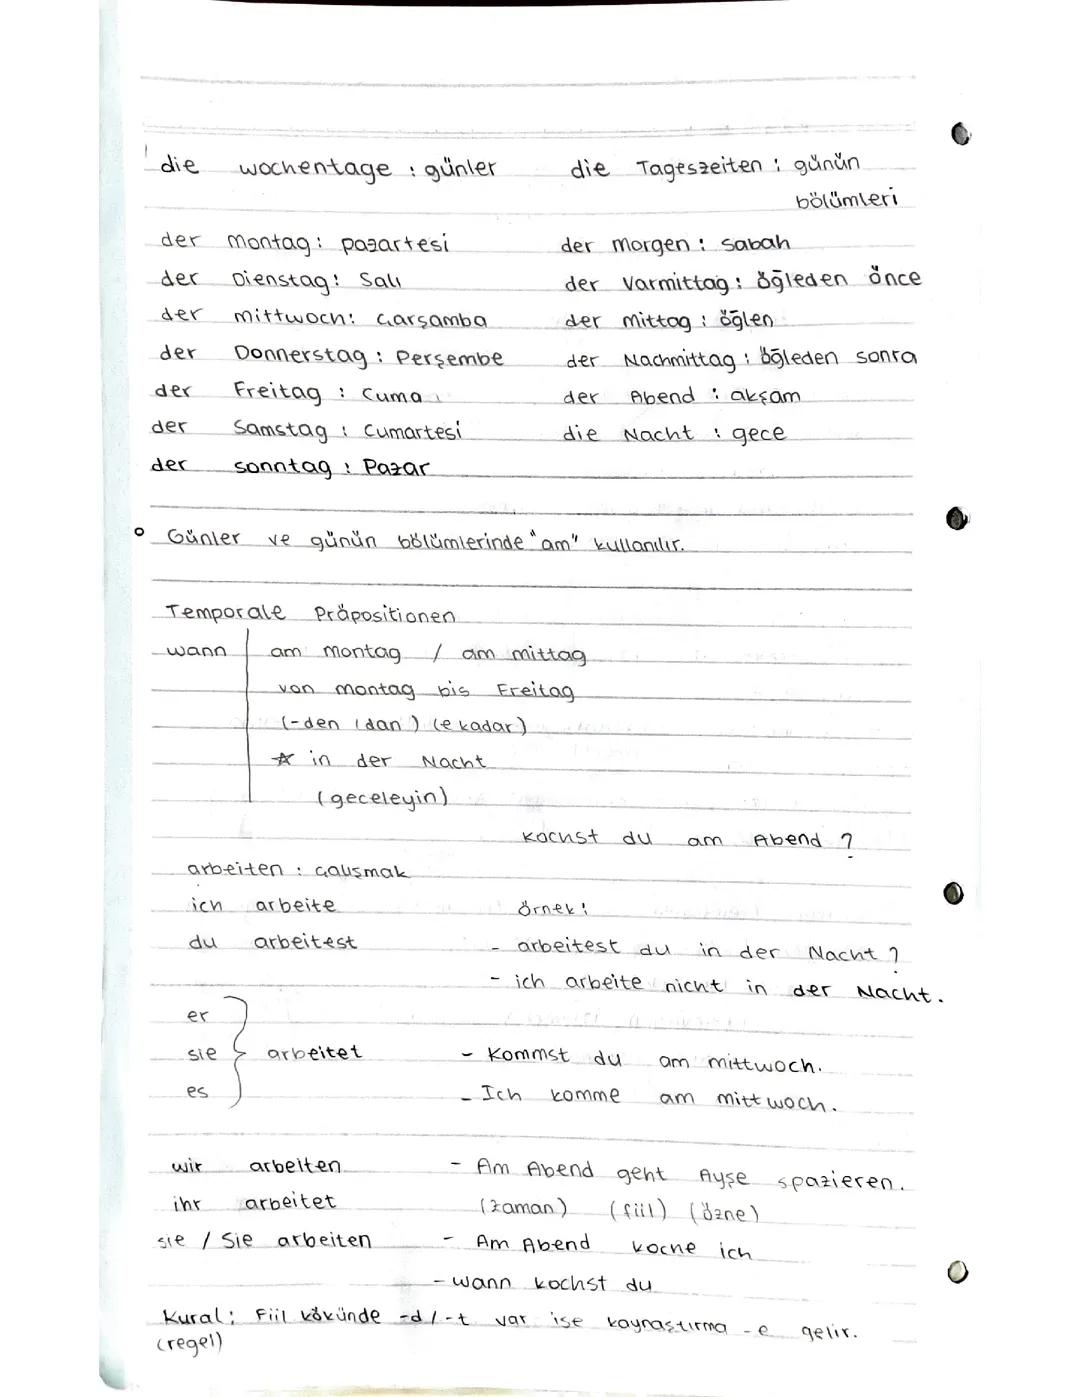 die wochentage : günler
die Tageszeiten : günün
bölümleri
der montag : pazartesi
der Dienstag : Salı
der mittwoch : çarşamba
der Donnerstag : Perşembe
der Freitag : Cuma
der Samstag : Cumartesi
der sonntag : Pazar
der morgen : sabah
der Varmittag : öğleden önce
der mittag : öğlen
der Nachmittag : öğleden sonra
der Abend : akşam
die Nacht : gece
° Günler ve günün bölümlerinde "am" kullanılır.
Temporale Präpositionen
wann am montag / am mittag
von montag bis Freitag
(-den (dan) (e kadar)
☆ in der Nacht
(geceleyin)
kochst du am Abend ?
arbeiten : çalışmak
ich arbeite
du arbeitest
er
sie } arbeitet
es
wir arbeiten
ihr arbeitet
sie / Sie arbeiten
örnek :
- arbeitest du in der Nacht ?
- ich arbeite nicht in der Nacht.
- Kommst du am mittwoch.
- Ich komme am mittwoch.
- Am Abend geht Ayşe spazieren.
(zaman) (fiil) (özne)
- Am Abend koche ich
- wann kochst du
Kural : Fiil kökünde -d / -t var ise kaynaştırma -e gelir.
(regel)